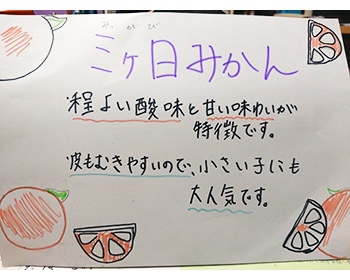 みっかび
三ヶ日みかん
程よい酸味と甘い味わいが
特徴です。
皮もむきやすいので、小さい子にも
大人気です。